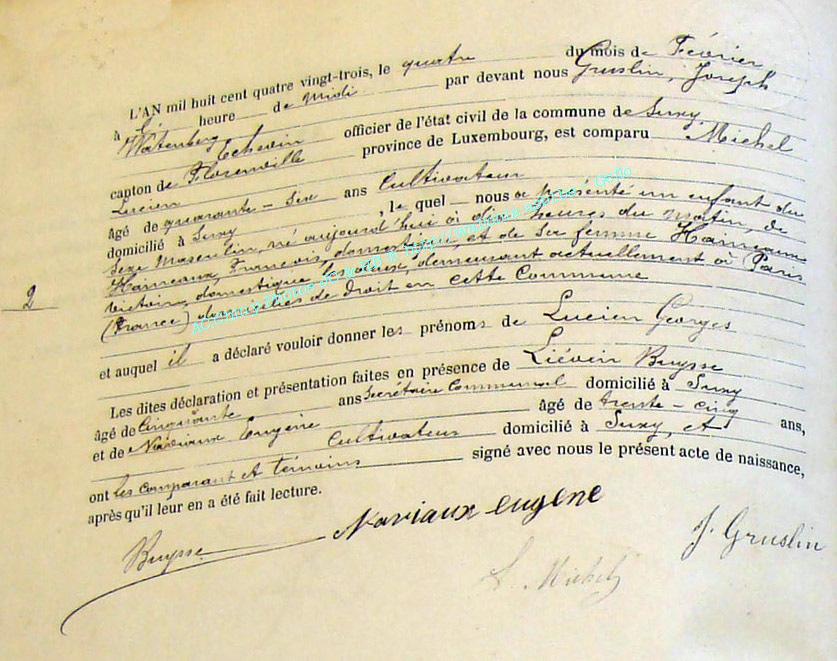 L'AN mil huit cent quatre vingt-trois, le quatre du mois de Février
à heure de midi par devant nous Gruslin, Joseph
Watenberg Echevin officier de l'état civil de la commune de Suxy
canton de Florenville province de Luxembourg, est comparu Michel
Lucien
âgé de quarante-six ans Cultivateur
domicilié à Suxy, le quel nous a présenté un enfant du
Sexe Masculin, né aujourd'hui à dix heures du matin, de
Hameaux, François, domestique, et de sa femme Hameaux
Victoire, domestique les deux, demeurant actuellement à Paris
(France) domiciliés de droit en cette Commune
2
et auquel il a déclaré vouloir donner les prénoms de Lucien Georges
Les dites déclaration et présentation faites en présence de Liévin Buysse
âgé de Cinquante ans Secrétaire Communal domicilié à Suxy
et de Naviaux Eugène âgé de trente-cinq ans,
Cultivateur domicilié à Suxy, et
ont les comparant et témoins signé avec nous le présent acte de naissance,
après qu'il leur en a été fait lecture.
Buysse
Naviaux eugene
J. Gruslin
L. Michel